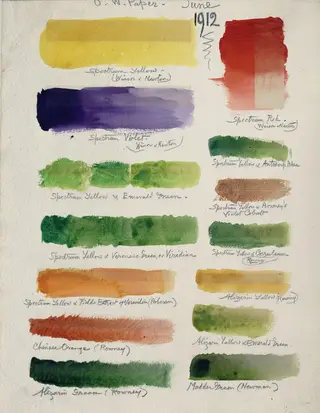 O. W. Paper - June
1912
Spectrum Yellow -
(Winsor & Newton)
Spectrum Red.
(Winsor Newton)
Spectrum Violet -
(Winsor & Newton)
Spectrum Yellow &
Spectrum Yellow & Emerald Green.
Spectrum Yellow & Rowney's
Violet Cobalt
Spectrum Yellow &
Spectrum Yellow & Veronaise Green, or Viridian
(Rowney)
Spectrum Yellow &
Alizarin Yellow (Rowney)
Chinese Orange (Rowney)
Alizarin Yellow & Emerald Green
Alizarin Green (Rowney)
Madder Brown (Newman)